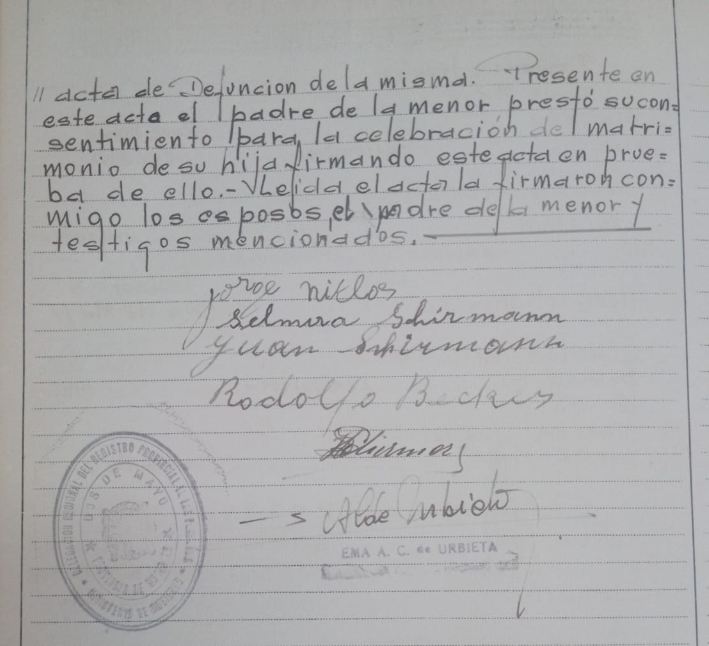 // acta de Defuncion de la misma. Presente en
este acta el padre de la menor prestó su con=
sentimiento para la celebración del matri=
monio de su hija firmando este acta en prue=
ba de ello.- Leida el acta la firmaron con=
migo los esposos, el padre de la menor y
testigos mencionados.-
jorge niclos
Selmira Shirmann
Yuan Shirmann
Rodolfo Becker
EMA A. C. de URBIETA
DELEGACION REGIONAL DEL REGISTRO PROVINCIAL
DOS DE MAYO